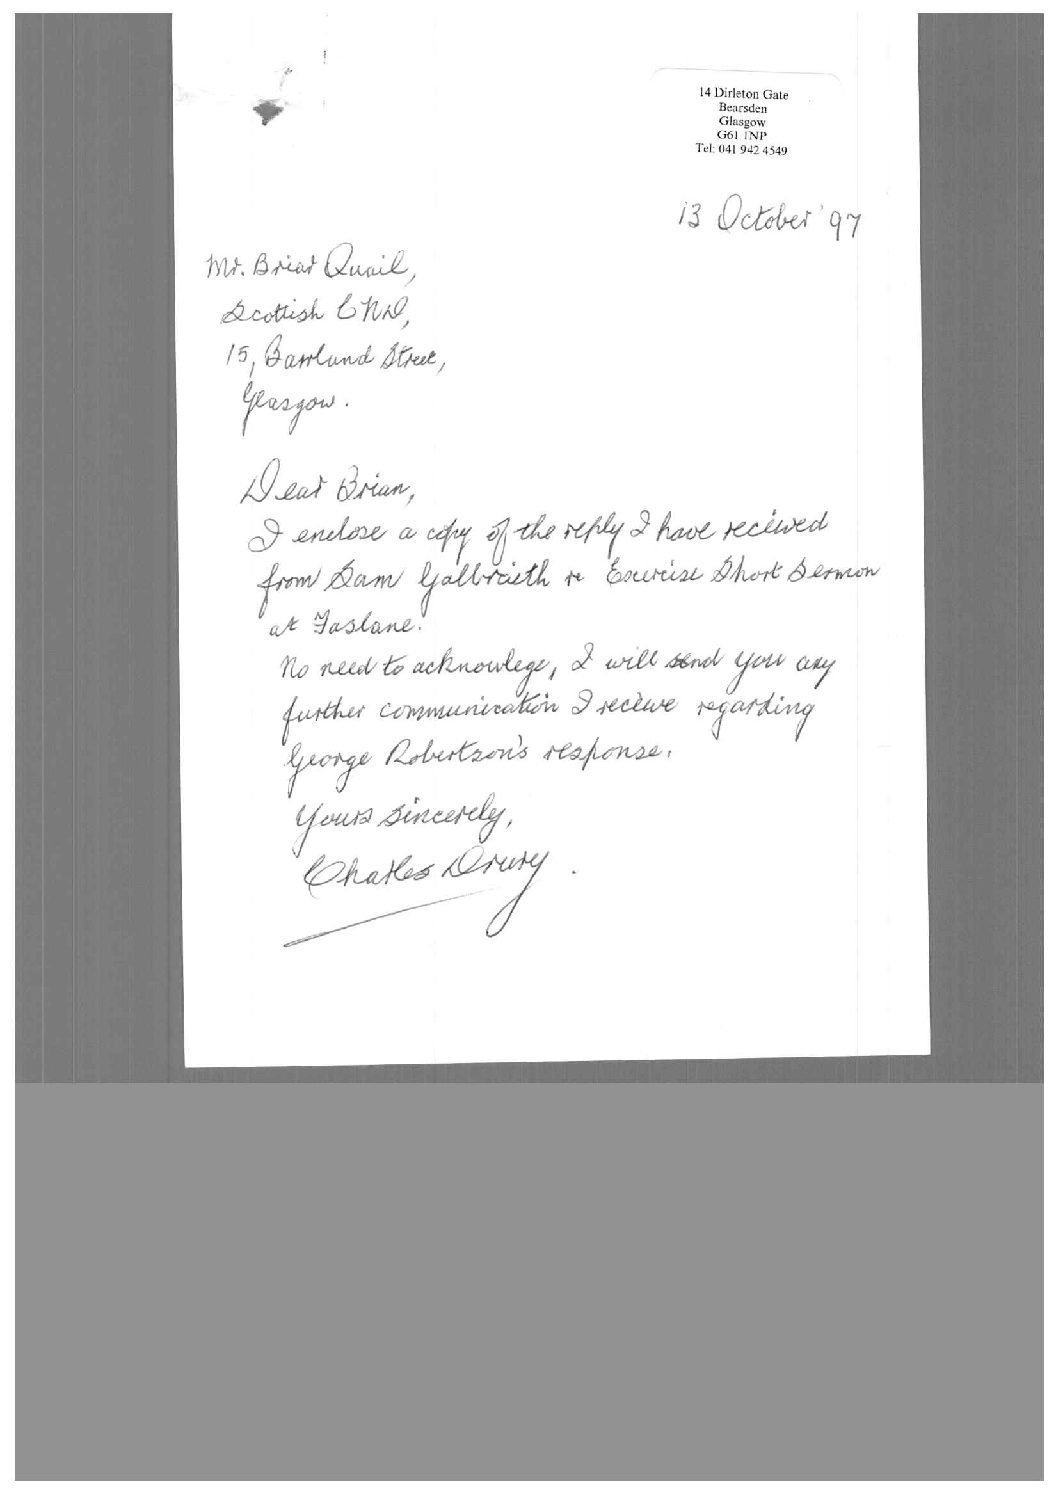 14 Dirleton Gate
Bearsden
Glasgow
G61 1NP
Tel: 041 942 4549
13 October '97
Mr. Brian Quail,
Scottish CND,
15, Barrland Street,
Glasgow.
Dear Brian,
I enclose a copy of the reply I have recieved
from Sam Galbraith re Exercise Short Sermon
at Faslane.
No need to acknowlege, I will send you any
further communication I recieve regarding
George Robertson's response.
Yours sincerely,
Charles Drury.